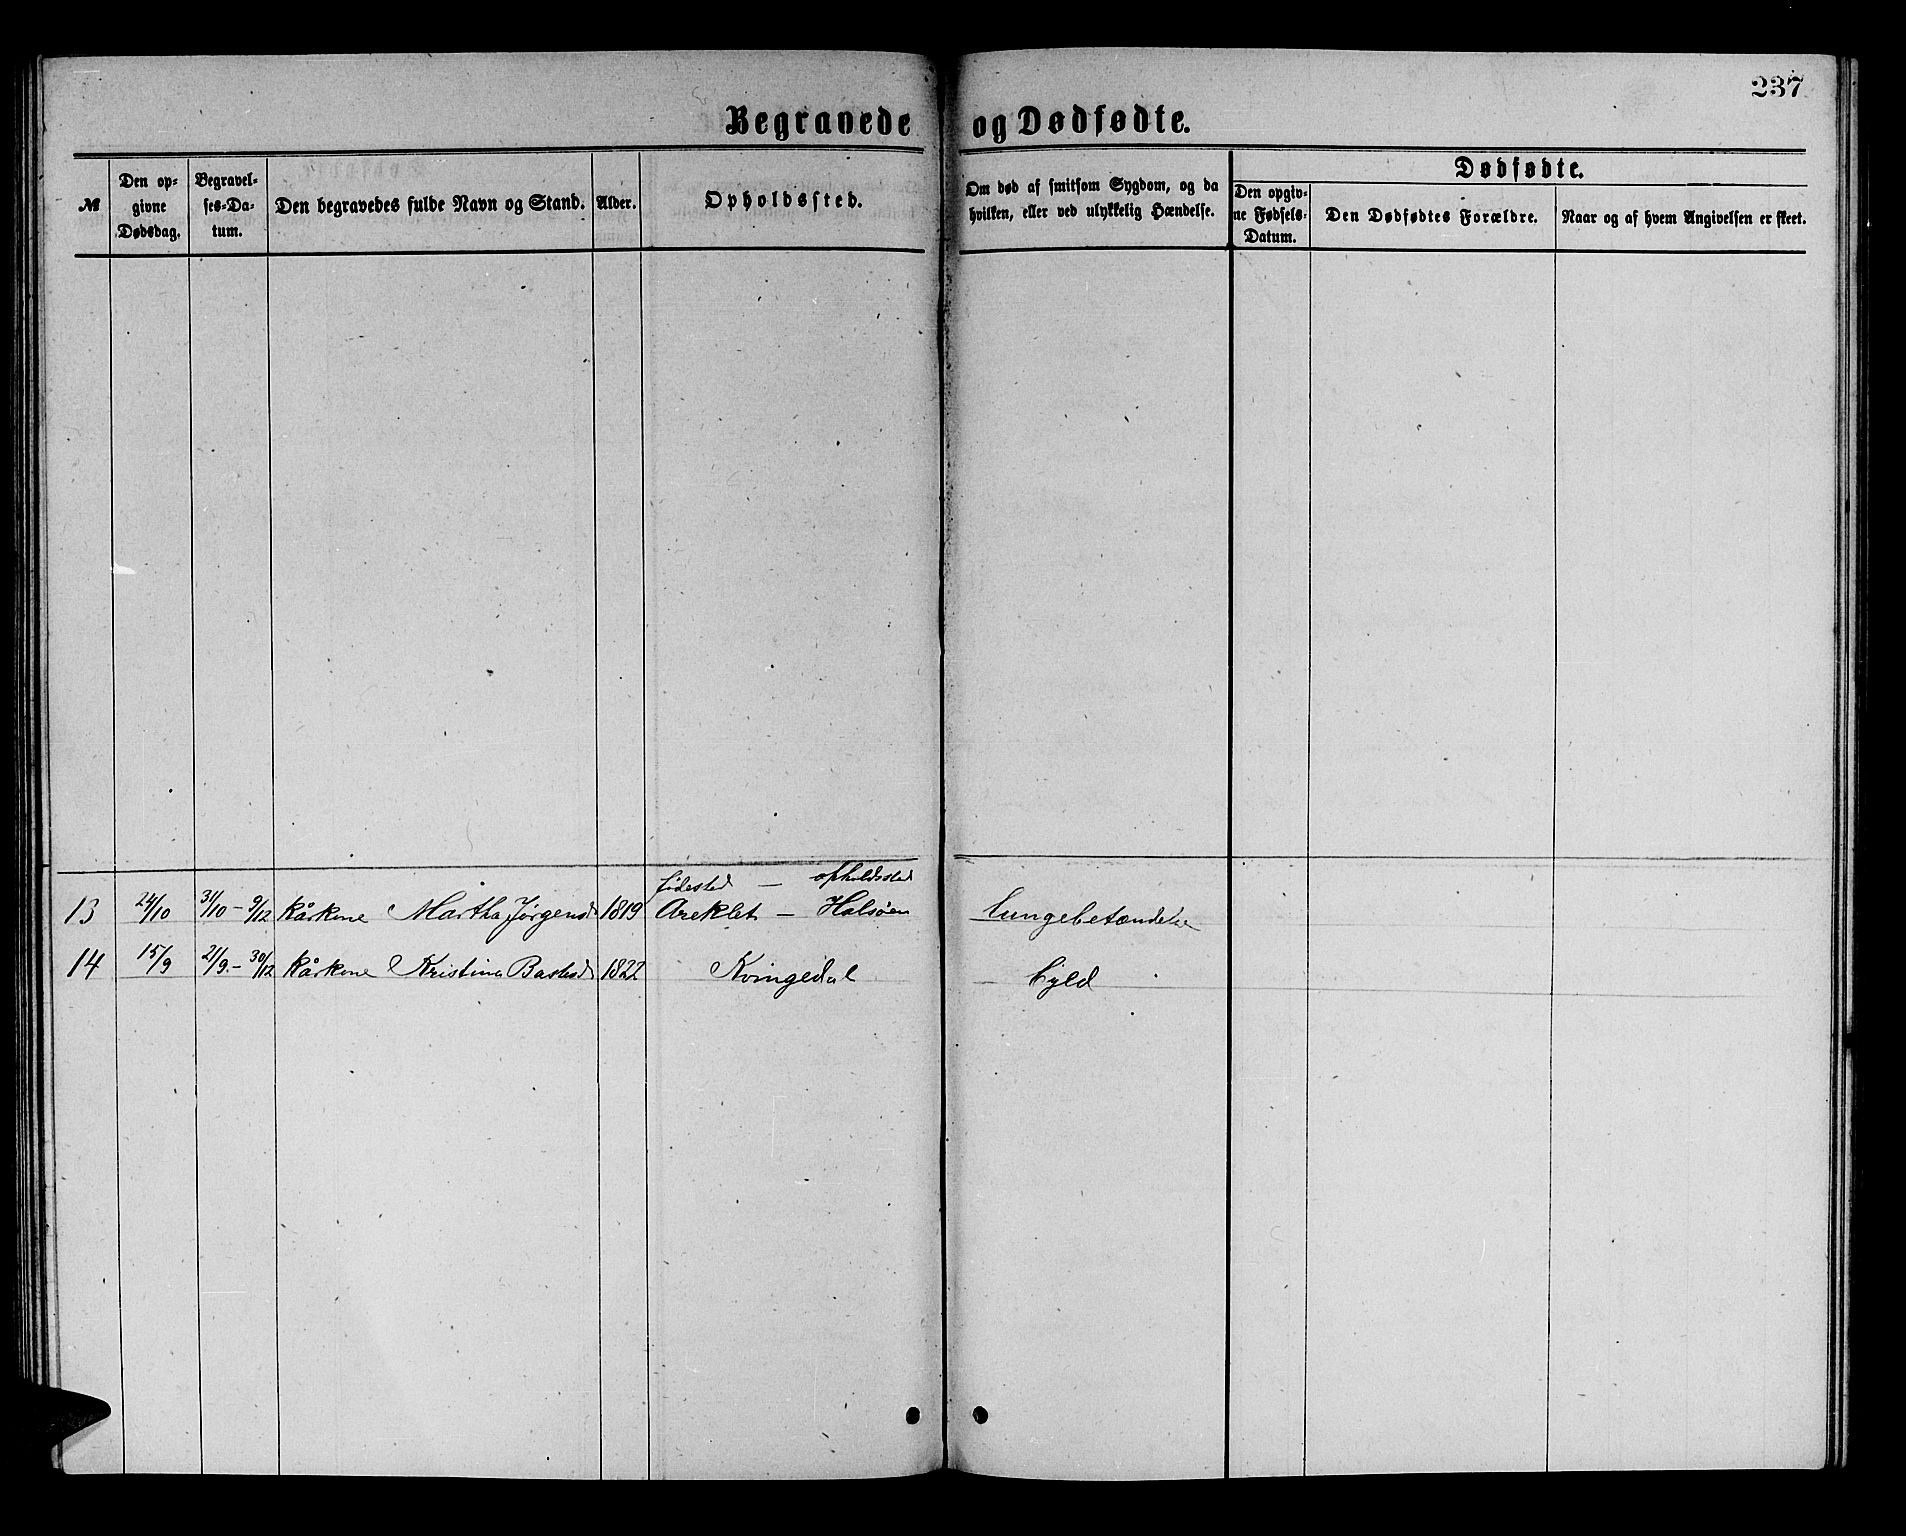 237
Begravede og Dødfødte.
№
Den op-
givne
Dødsdag.
Begravel-
ses-Da-
tum.
Den begravedes fulde Navn og Stand.
Alder.
Opholdssted.
Om død af smitsom Sygdom, og da
hvilken, eller ved ulykkelig Hændelse.
Dødfødte.
Den opgiv-
ne Fødsels-
Datum.
Den Dødfødtes Forældre.
Naar og af hvem Angivelsen er skeet.
fødested — opholdssted
13 24/10 31/10 - 9/12 Kårkone Martha Jørgensd 1819 Areklet — Halsøen Lungebetændelse
14 15/9 21/9 - 30/12 Kårkone Kristina Bastesd 1822 Kvingedal Byld